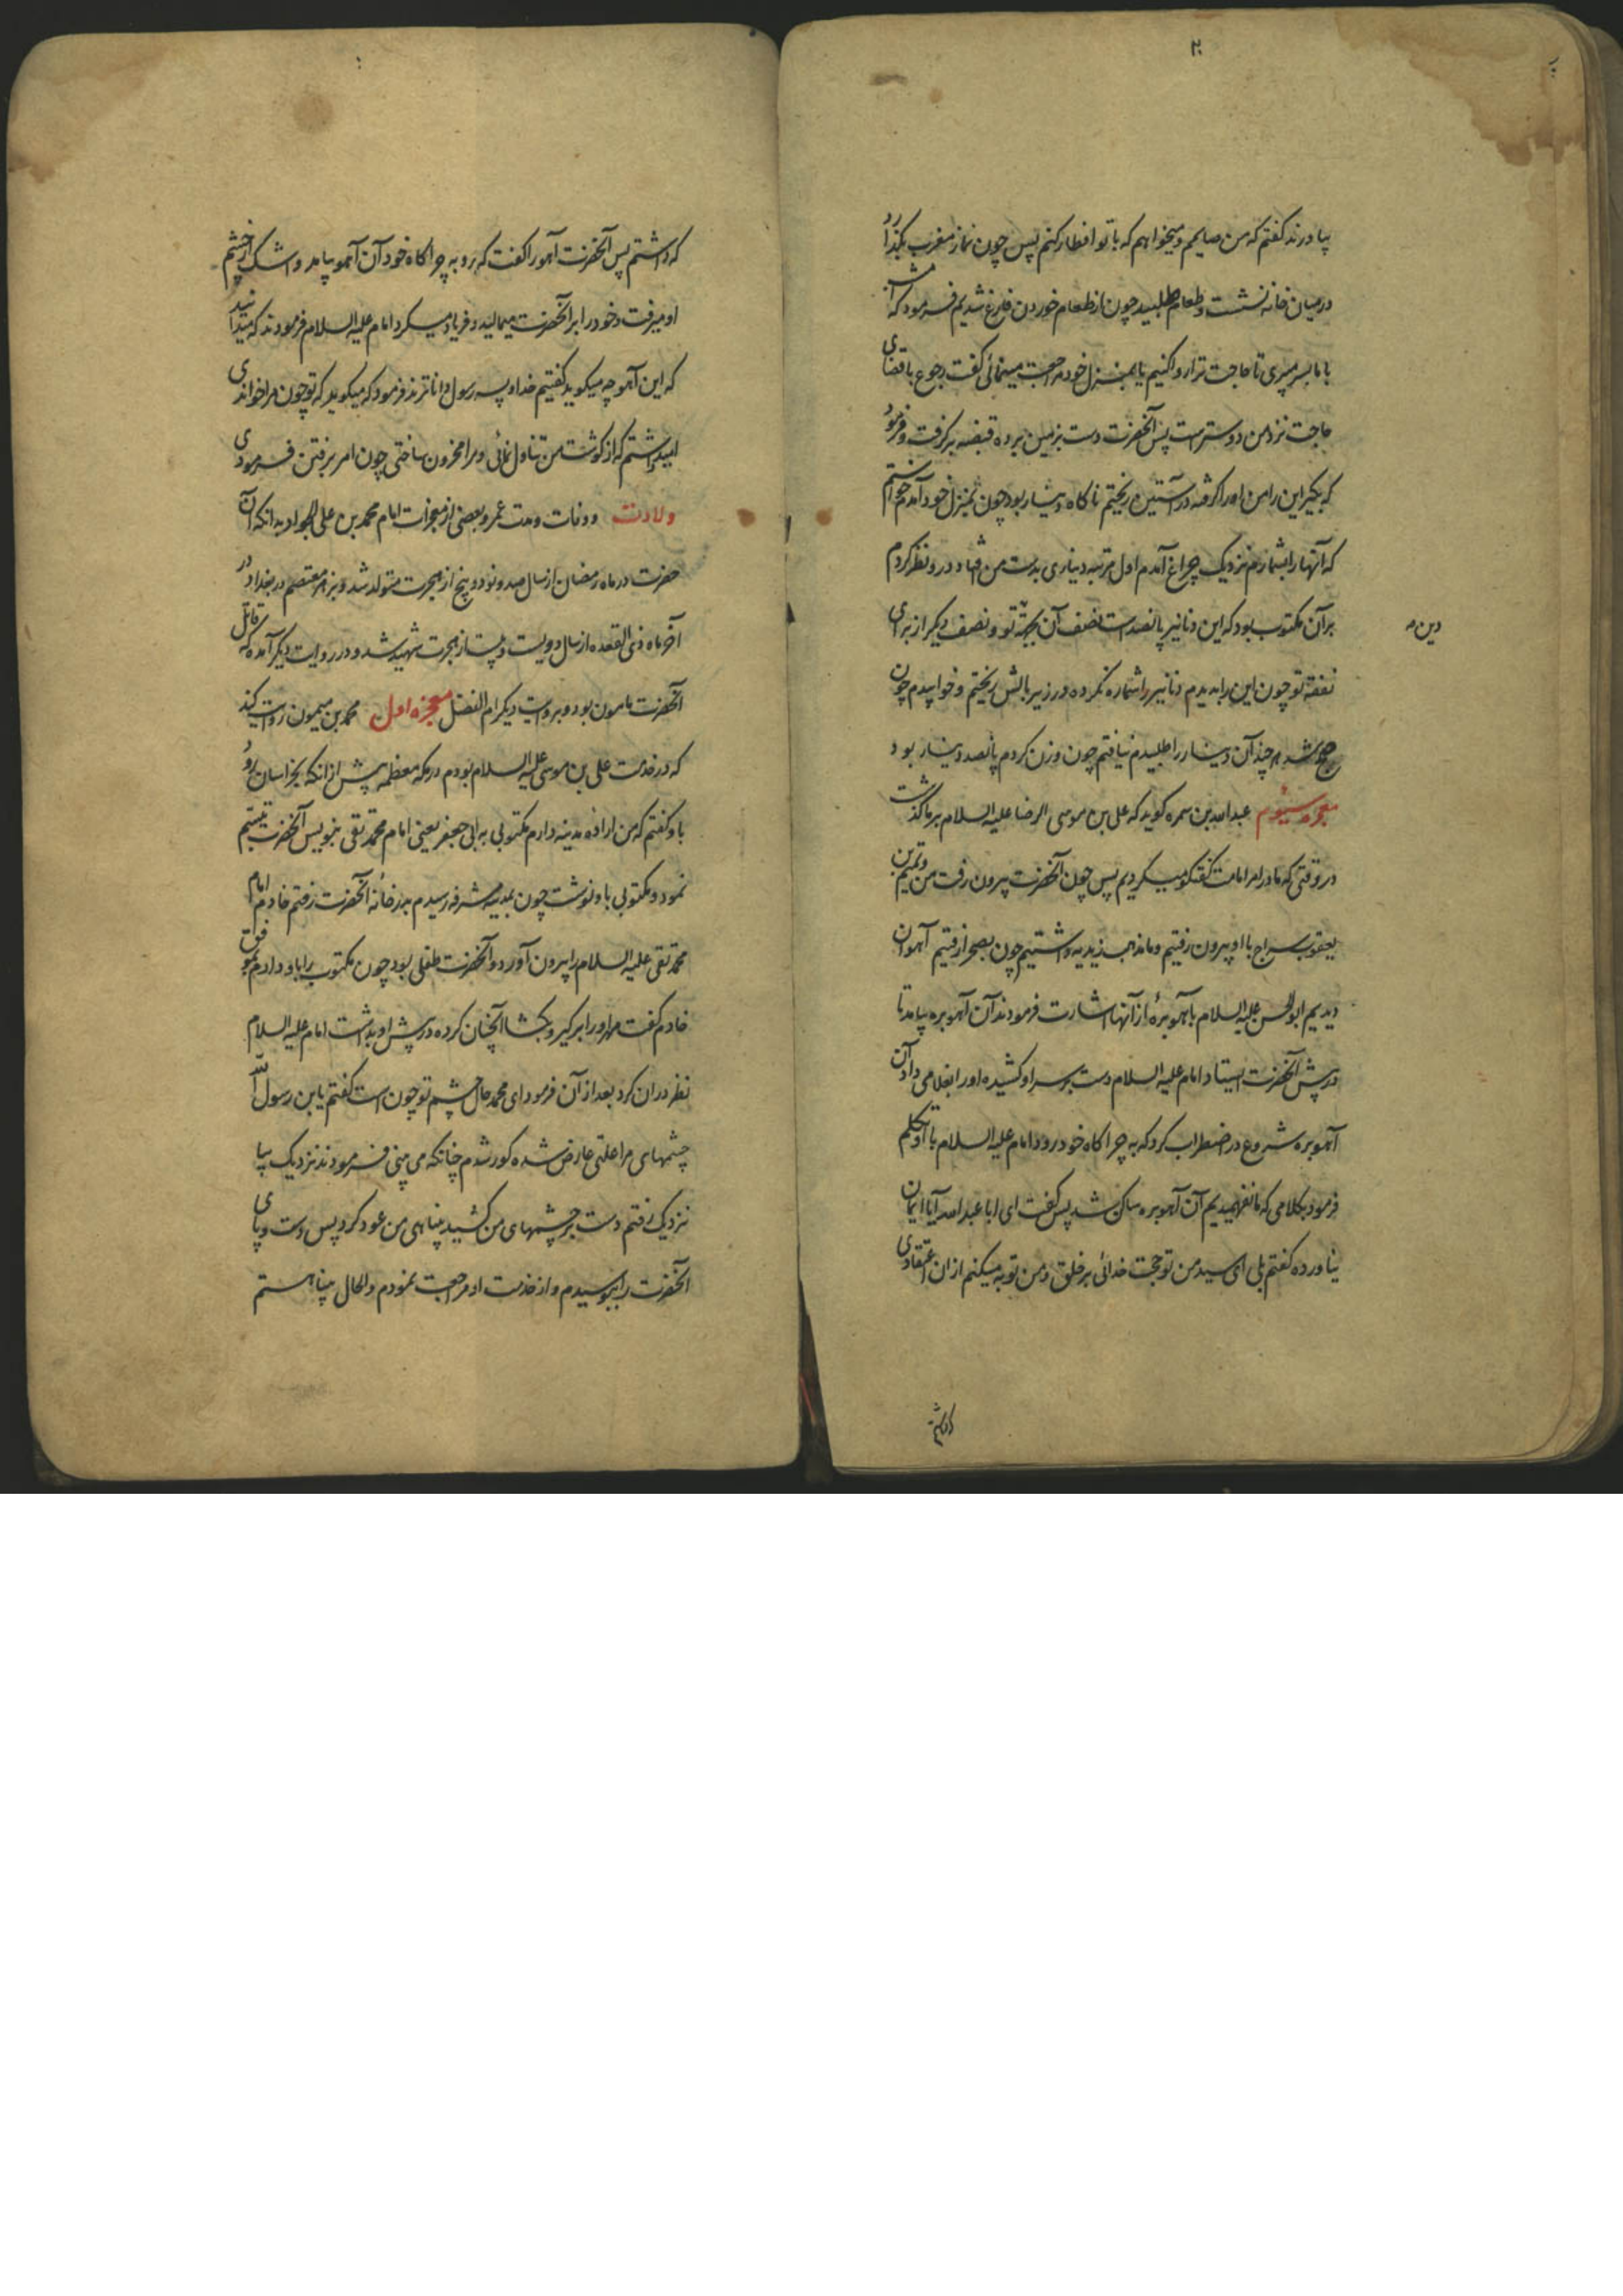 ۲۰
بیاورند گفتم که من صایمم و میخواهم که با تو افطار کنم پس چون نماز مغرب بگذارد
در میان خانه نشست و طعام طلبید چون از طعام خوردن فارغ شدیم فرمود که امشب
با ما بسر میبری تا حاجت ترا روا کنیم یا بمنزل خود مراجعت مینمائی گفت رجوع با قضای
حاجت نزد من دوسترست پس آنحضرت دست بزمین برده قبضه برگرفت و فرمود
که بگیر این را من او را گرفته در آستین ریختم ناکاه دینار بود چون بمنزل خود آمدم خواستم
که آنها را بشمارم نزدیک چراغ آمدم اول مرتبه دیناری بدست من افتاد درو نظر کردم
بر آن مکتوب بود که این دنانیر پانصدست نصف آن بجهة تو و نصف دیگر از برای
دین
نفقه تو چون این را بدیدم دنانیر را شماره نکرده در زیر بالش ریختم و خوابیدم چون
صبح شد هر چند آن دینار را طلبیدم نیافتم چون وزن کردم پانصد دینار بود
معجزه سیوم عبدالله بن سمره کوید که علی بن موسی الرضا علیه السلام بر ما گذشت
در وقتی که ما در امر امامت گفتکو میکردیم پس چون آنحضرت بیرون رفت من و تمیم بن
یعقوب سراج با او بیرون رفتیم و ما مذهب زیدیه داشتیم چون بصحرا رفتیم آهوان
دیدیم ابو الحسن علیه السلام بآهو برهٔ از آنها اشارت فرمودند آن آهو بره بیامد تا
در پیش آنحضرت ایستاد امام علیه السلام دست بر سر او کشیده او را بغلامی داد آن
آهو بره شروع در اضطراب کرد که به چراکاه خود رود امام علیه السلام با او تکلم
فرمود بکلامی که ما نفهمیدیم آن آهو بره ساکن شد پس گفت ای ابا عبدالله آیا ایمان
نیاورده گفتم بلی ای سید من تو حجت خدائی بر خلق و من توبه میکنم از ان اعتقادی
که داشتم
که داشتم پس آنحضرت آهو را گفت که رو به چراکاه خود آن آهو بیامد و اشک از چشم
او میرفت و خود را بر آنحضرت میمالید و فریاد میکرد امام علیه السلام فرمودند که میدانید
که این آهو چه میکوید گفتیم خدا و پسر رسول داناترند فرمود که میکوید که تو چون مرا خواندی
امید داشتم که از کوشت من تناول نمائی و مرا محزون ساختی چون امر برفتن فرمودی
ولادت و وفات و مدت عمر و بعضی از معجزات امام محمد بن علی الجواد بدانکه آن
حضرت در ماه رمضان از سال صد و نود و پنج از هجرت متولد شد و بزهر معتصم در بغداد در
آخر ماه ذی القعده از سال دویست و بیست از هجرت شهید شد و در روایت دیگر آمده که قاتل
آنحضرت مامون بود و بروایت دیگر ام الفضل معجزه اول محمد بن میمون روایت کند
که در خدمت علی بن موسی علیه السلام بودم در مکه معظمه پیش از انکه بخراسان رود
باو گفتم که من اراده مدینه دارم مکتوبی به ابی جعفر یعنی امام محمد تقی بنویس آنحضرت تبسم
نمود و مکتوبی باو نوشت چون بمدینه مشرفه رسیدم بدر خانه آنحضرت رفتم خادم امام
محمد تقی علیه السلام را بیرون آورد و آنحضرت طفلی بود چون مکتوب را باو دادم بموفق
خادم گفت مهر او را برگیر و بکشا آنچنان کرده در پیش او بداشت امام علیه السلام
نظر دران کرد بعد از آن فرمود ای محمد حال چشم تو چون است گفتم یا بن رسول الله
چشمهای مرا علتی عارض شده کور شدم چنانکه می بینی فرمودند نزدیک بیا
نزدیک رفتم دست بر چشمهای من کشید بینایی من عود کرد پس دست و پای
آنحضرت را ببوسیدم و از خدمت او مراجعت نمودم و الحال بینا هستم